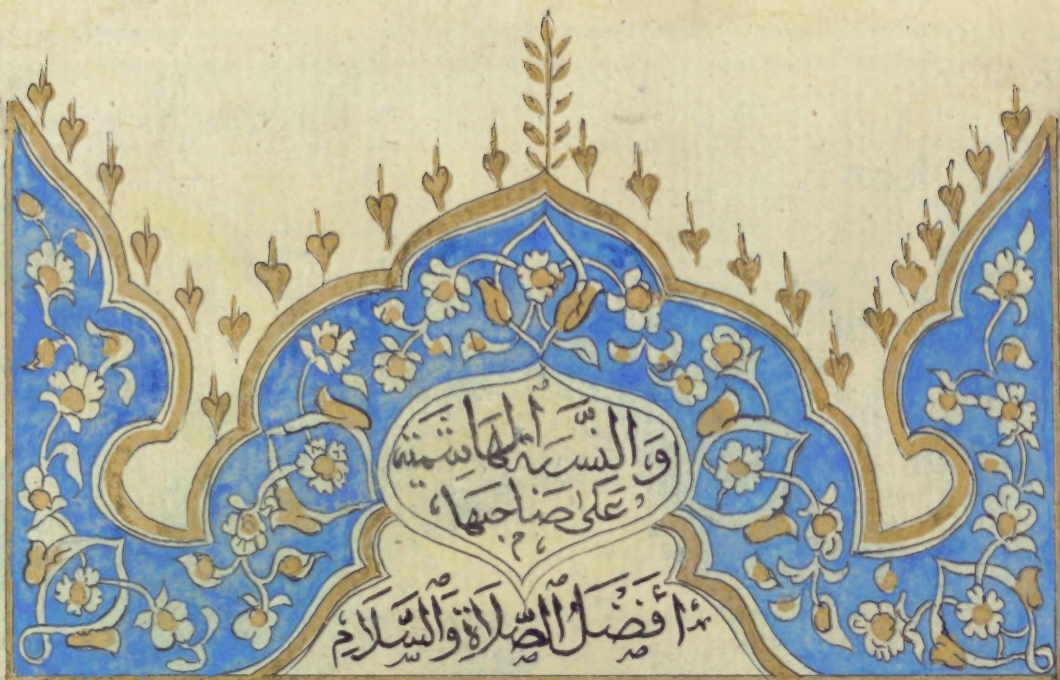 وَالنِّسْبَةِ الْهَاشِمِيَّةِ
عَلَى صَاحِبِهَا
أَفْضَلُ الصَّلَاةِ وَالسَّلَامِ